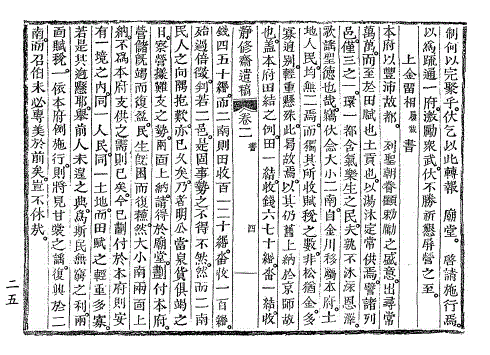 制何以完聚乎伏乞以此轉報 廟堂。啓請施行焉。
以爲疏通一府激勵衆武伏不勝祈懇屛營之至。
上金留相 履載 書
本府以豐沛故都。 列聖朝眷顧勅勵之盛意出尋常
萬萬。而至於田賦也土貢也。以湯沐定常供焉。譬諸列
邑僅三之一。環一都含氣衆生之民夫孰不沐深恩涯
歌謠聖德也哉竊伏念大小二南自金川移屬本府。土
地人民均爲一焉。而獨其所收賦稅之數非松猶金多
寡逈別輕重懸殊此曷故焉以其仍舊上納於京師故
也盖本府田結之例田一結收錢六七十緡畓一結收
靜修齋遺稿 卷二 書 四
錢四五十緡而二南則田收百二十緡。畓收一百緡
始過倍徵到若二邑。是固事勢之不得不然。然而二南
民人之向隅抱歎亦已久矣。乃者明公當泉貨俱竭之
日察營撥難支之勢。兩上請得於廟堂劃付本府。
營儲旣竭而復盈民生旣困而復穩。然大小南兩面上
納不爲本府支供之需則已矣。今已劃付於本府則安
有一境之內同一人民同一土地而田賦之輕重多寡
若是其逈懸耶擧前人未遑之典爲斯民無窮之利兩
面賦稅。一依本府例施行。則將見甘棠之謠復興於二
南而召伯未必專美於前矣。豈不休哉。
二五